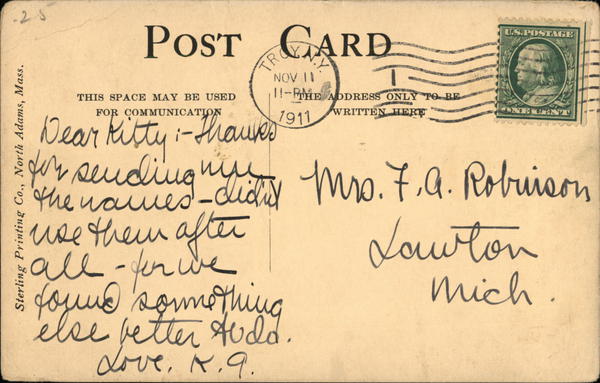 .25
POST CARD
TROY, N.Y.
NOV 11
11-PM
1911
1
U.S. POSTAGE
ONE CENT
THIS SPACE MAY BE USED
FOR COMMUNICATION
THE ADDRESS ONLY TO BE
WRITTEN HERE
Sterling Printing Co., North Adams, Mass.
Dear Kitty:- Thanks
for sending me
the names - didn't
use them after
all - for we
found something
else better to do.
Love. K. G.
Mrs. F. A. Robinson
Lawton
Mich.